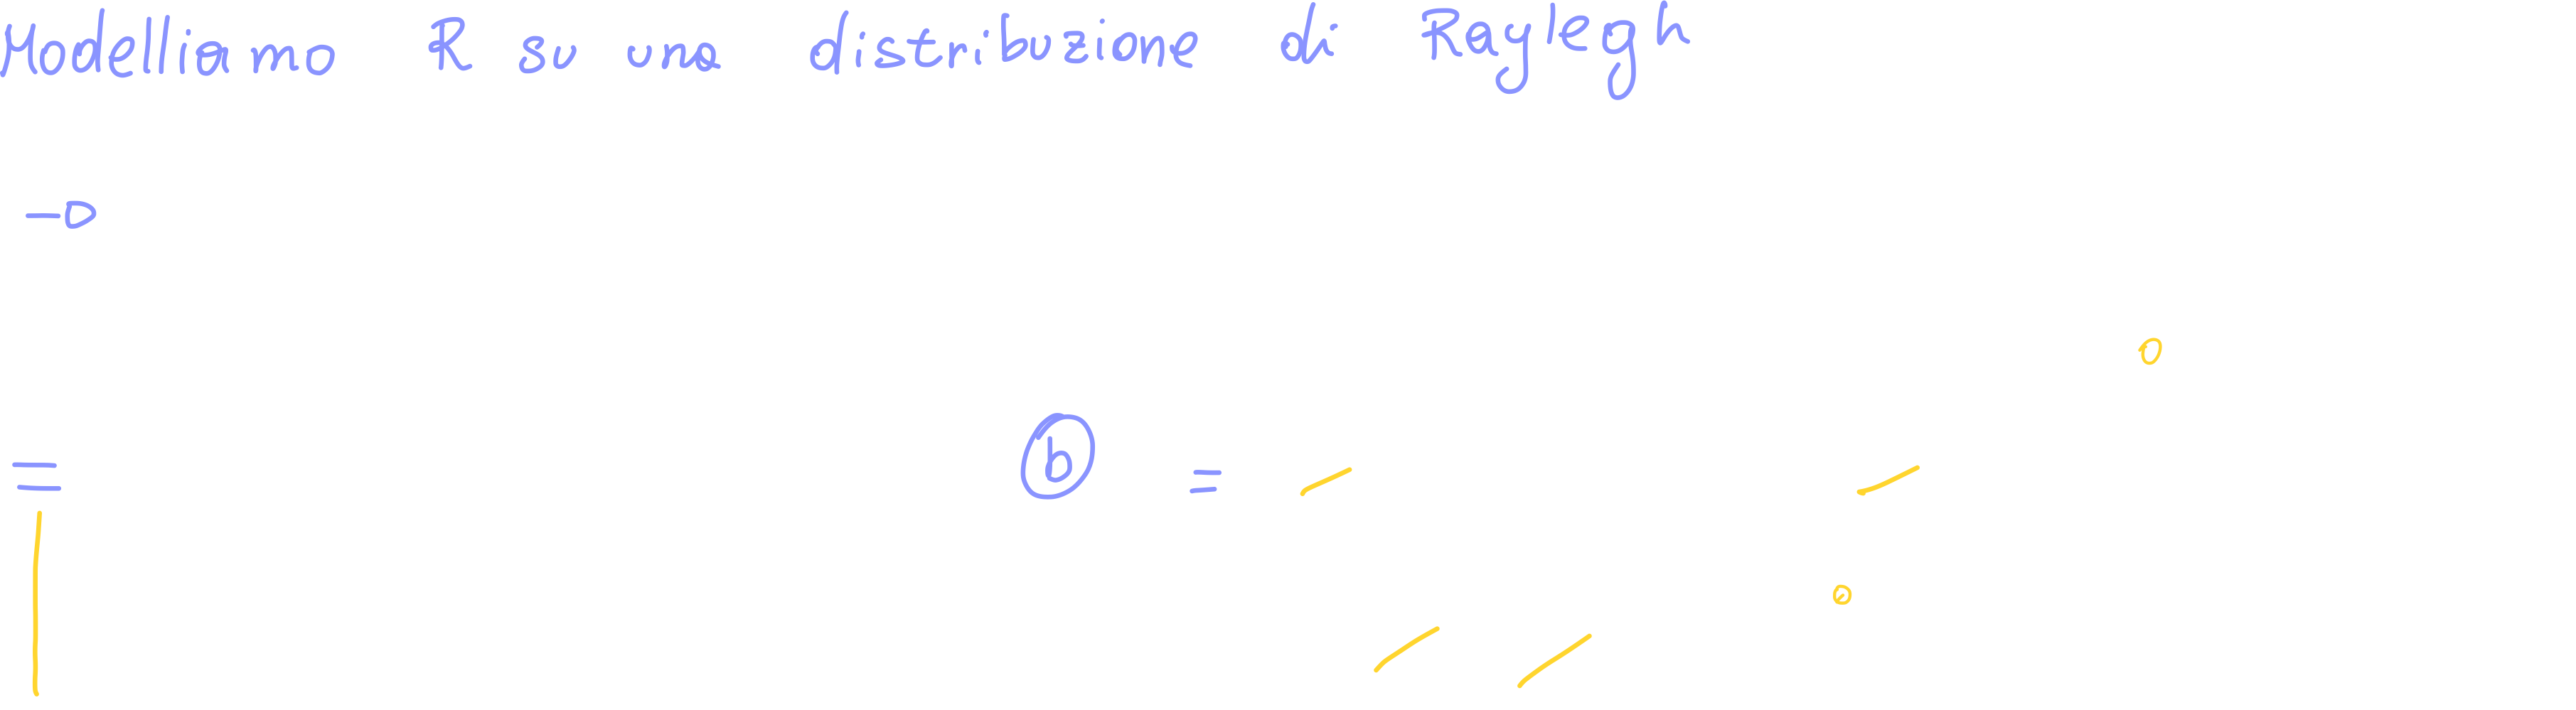 Modelliamo R su una distribuzione di Raylegh
→
= ⓑ =